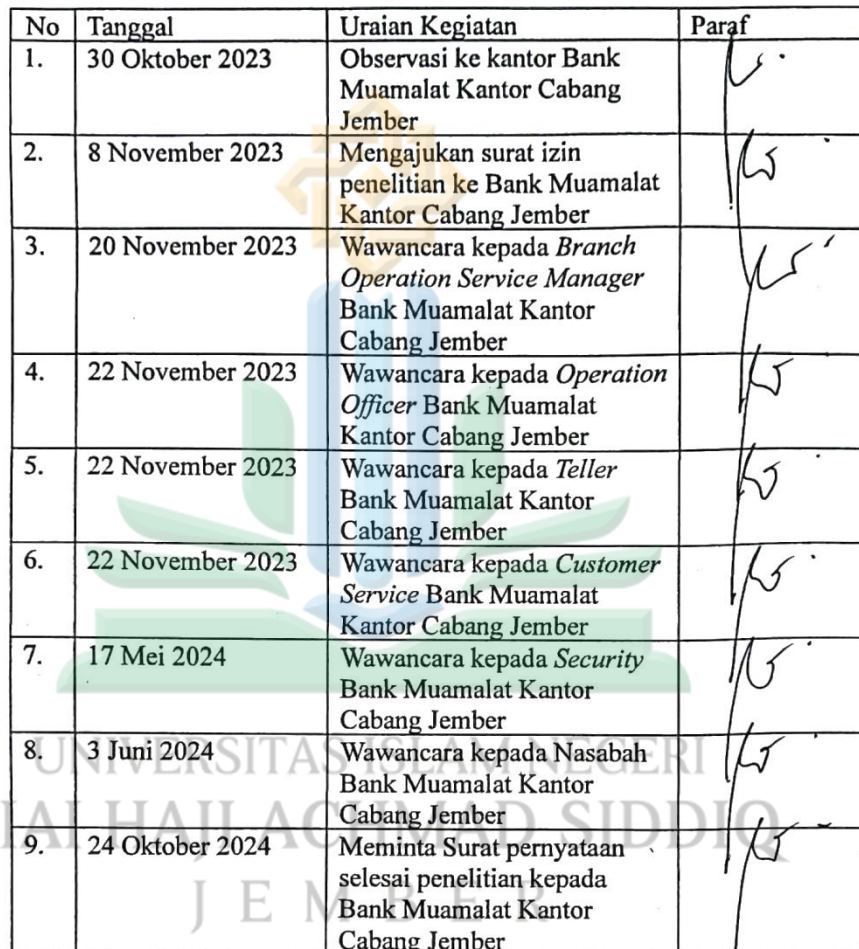 No Tanggal Uraian Kegiatan Paraf
1. 30 Oktober 2023 Observasi ke kantor Bank
Muamalat Kantor Cabang
Jember
2. 8 November 2023 Mengajukan surat izin
penelitian ke Bank Muamalat
Kantor Cabang Jember
3. 20 November 2023 Wawancara kepada Branch
Operation Service Manager
Bank Muamalat Kantor
Cabang Jember
4. 22 November 2023 Wawancara kepada Operation
Officer Bank Muamalat
Kantor Cabang Jember
5. 22 November 2023 Wawancara kepada Teller
Bank Muamalat Kantor
Cabang Jember
6. 22 November 2023 Wawancara kepada Customer
Service Bank Muamalat
Kantor Cabang Jember
7. 17 Mei 2024 Wawancara kepada Security
Bank Muamalat Kantor
Cabang Jember
8. 3 Juni 2024 Wawancara kepada Nasabah
Bank Muamalat Kantor
Cabang Jember
9. 24 Oktober 2024 Meminta Surat pernyataan
selesai penelitian kepada
Bank Muamalat Kantor
Cabang Jember
UNIVERSITAS ISLAM NEGERI
IAI HAJI ACHMAD SIDDIQ
JEMBER